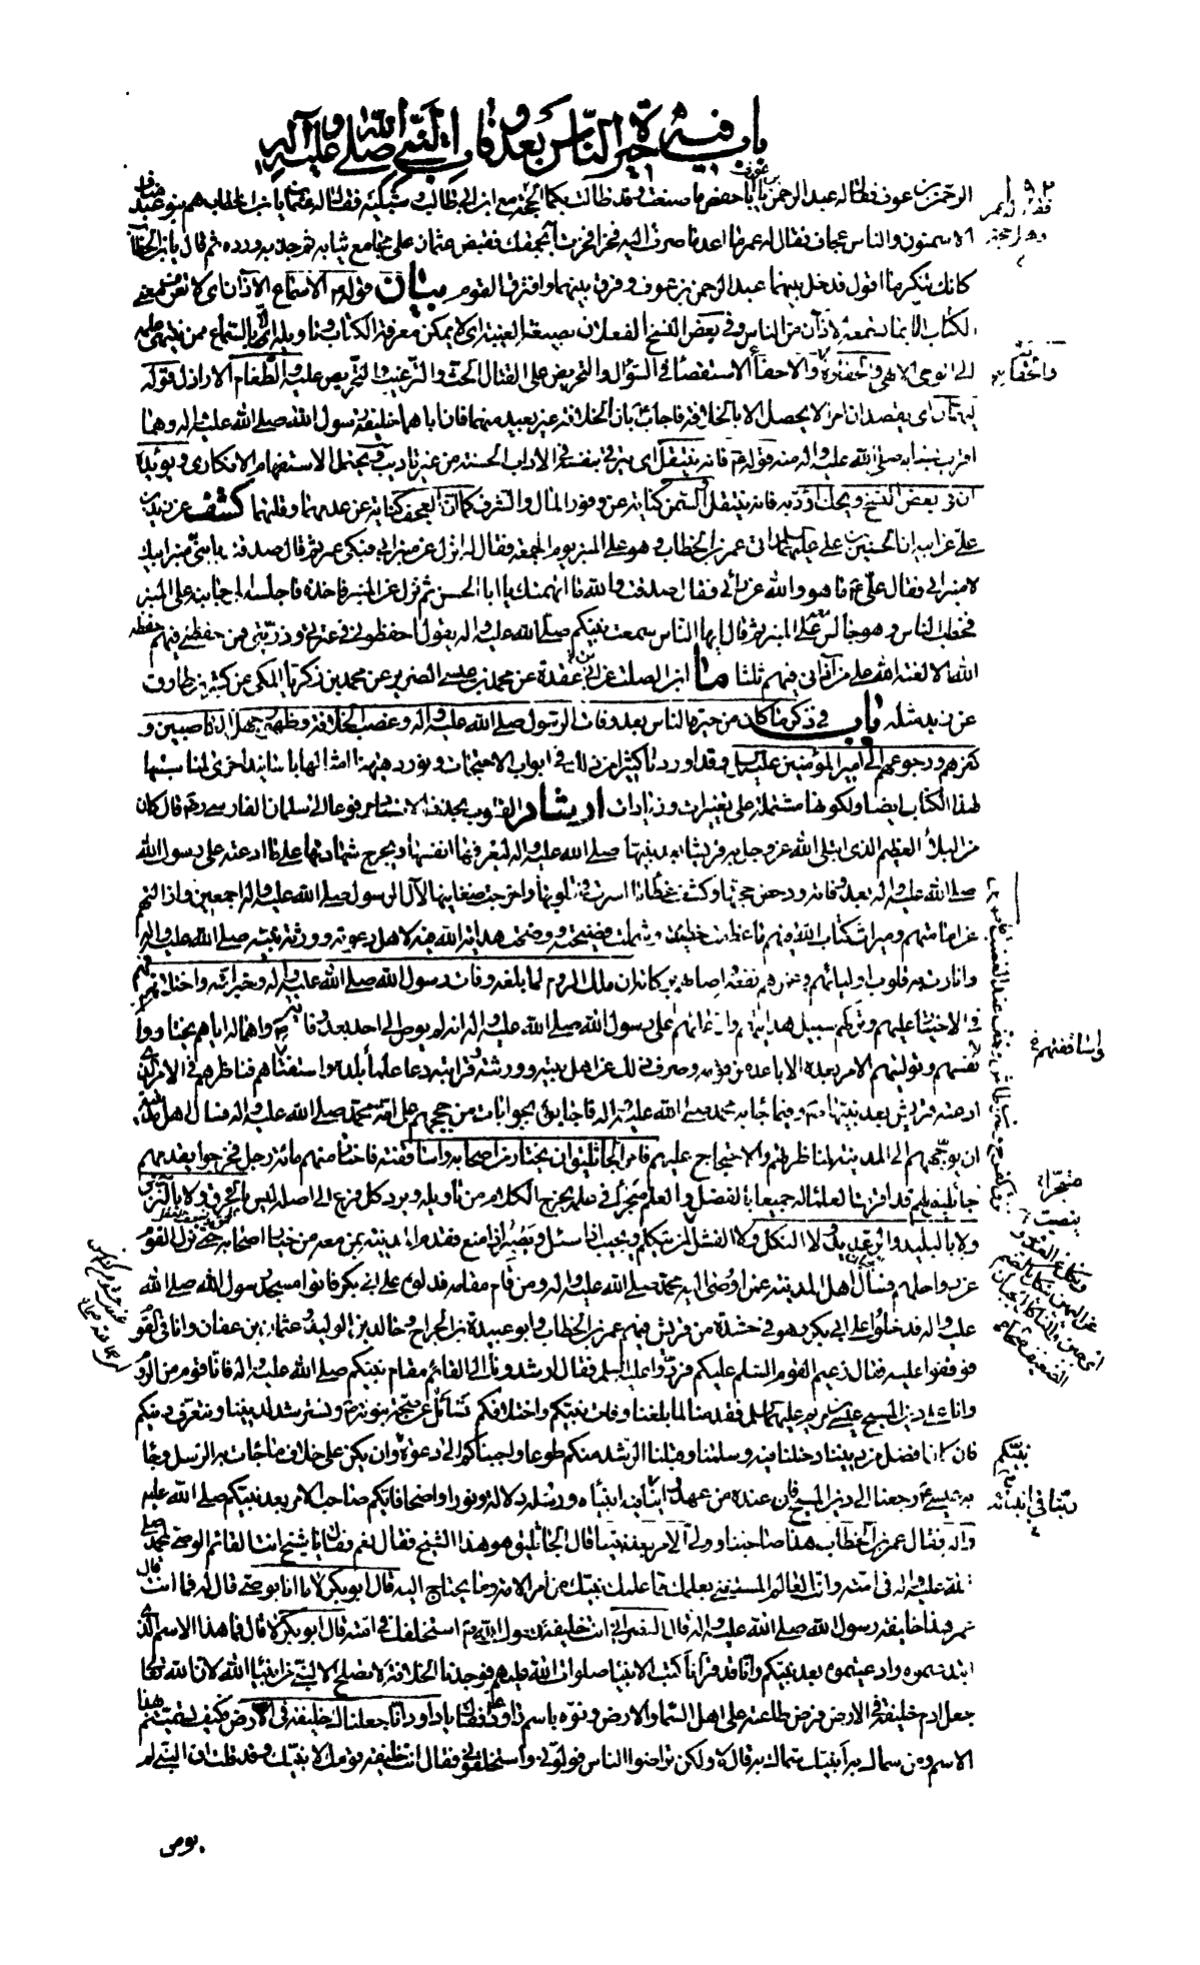 باب فيه ذكر حيرة الناس بعد وفات النبي صلى الله عليه وآله
الرحمن بن عوف فقال له عبد الرحمن يا أبا حفص ما صنعت وقد طالت بكما الحجة مع ابن أبي طالب
الا سمنون والناس عجاف فقال له عمر ما اعد ما صرت اليه فخرا فقبض عثمان على مجامع ثيابه ثم جذبه ورده ثم قال يا بن
كانك تنكر ما اقول فدخل بينهما عبد الرحمن بن عوف وفرق بينهما وافترق القوم بيان قوله الا سماع الآذان اي لا تعرف معنى
الكتاب الا بما تسمعه الآذان من الناس وفي بعض النسخ الفعلان بصيغة الغيبة اي لا يمكن معرفة الكتاب وتاويله الا بالسماع ممن ينتهي علمه
الى الوحي الالهي والاحفاء الاستقصاء في السؤال والتحريض على القتال الحث والترغيب والتحريص عليه والطغام الاراذل قوله
اي يقصد ان امرا لا يحصل الا بالخلافة فاجاب بان الخلافة غير بعيد منهما فان اباهما خليفة رسول الله صلى الله عليه واله وهما
اقرب به صلى الله عليه واله منه قوله فانه ينتقل اي يترقى بنفسه في الاداب الحسنة من غير تاديب ويحتمل الاستفهام الانكاري ويؤيده
ان في بعض النسخ ويحك اؤدبه فانه ينتقل والسمن كناية عن وفور المال والشرف كما ان العجف كناية عن عدمهما وقلتهما كشف عن زيد بن
علي عن ابيه ان الحسين بن علي عليهما السلام اتى عمر بن الخطاب وهو على المنبر يوم الجمعة فقال له انزل عن منبر ابي فبكى عمر ثم قال صدقت يا بني منبر ابيك
لا منبر ابي فقال علي ما هو والله عن رأيي فقال صدقت والله ما اتهمتك يا ابا الحسن ثم نزل عن المنبر فاخذه فاجلسه الى جانبه على المنبر
فخطب الناس وهو جالس على المنبر ثم قال ايها الناس سمعت نبيكم صلى الله عليه واله يقول احفظوني في عترتي وذريتي فمن حفظني فيهم حفظه
الله الا لعنة الله على من آذاني فيهم ثلثا ما ابن الصلت عن ابن عقدة عن محمد بن عيسى الضرير عن محمد بن زكريا المكي عن كثير بن طارق
عن زيد مثله باب في ذكر ما كان من حيرة الناس بعد وفات الرسول صلى الله عليه واله وغصب الخلافة وظهور جهل الغاصبين و
كفرهم ورجوعهم الى امير المؤمنين عليه السلام وقد اوردنا كثيرا من ذلك في ابواب الاحتجاجات ونورد هيهنا امثالها باسانيد اخرى لمناسبتها
لهذا الكتاب ايضا ولكونها مشتملة على تغييرات وزيادات ارشاد القلوب بحذف الاسناد مرفوعا الى سلمان الفارسي رضي الله عنه قال كان
من البلاء العظيم الذي ابتلى الله عز وجل به قريشا بعد نبيها صلى الله عليه واله ليعرفها انفسها ويجرح شهادتها على ما ادعته على رسول الله
صلى الله عليه واله بعد وفاته ودحض حجتها وكشف غطاء ما اسرت في قلوبها واخرجت ضغاينها لآل الرسول صلى الله عليه واله اجمعين وازالتهم
عن امامتهم وميراث كتاب الله فيهم ما عظمت خطيئته وشملت فضيحته ووضحت هداية الله فيه لاهل دعوته وورثة نبيه صلى الله عليه واله
وانارت به قلوب اوليائهم وغمرهم نفعه واصابهم بركاته ان ملك الروم لما بلغه وفات رسول الله صلى الله عليه واله وخبر امته واختلافهم
في الاختيار عليهم وتركهم سبيل هدايتهم وادعائهم على رسول الله صلى الله عليه واله انه لم يوص الى احد بعد وفاته واهماله اياهم يختاروا
لانفسهم وتوليتهم الامر بعده الاباعد من قومه وصرف ذلك عن اهل بيته وورثته وقرابته دعا علماء بلده واستفتاهم فناظرهم في الامر الذي
ادعته قريش بعد نبيها وفيما جاء به محمد صلى الله عليه واله فاجابوه بجوابات من حججهم على انه محمد صلى الله عليه واله فسال اهل مدينته
ان يوجههم الى المدينة لمناظرتهم والاحتجاج عليهم فامر الجاثليق ان يختار من اصحابه واساقفته فاختار منهم مائة رجل فخرجوا يقدمهم
جاثليق لهم قد اقرت العلماء له جميعا بالفضل والعلم متبحرا في علمه يخرج الكلام من تاويله ويرد كل فرع الى اصله ليس بالخرق ولا بالنزق
ولا بالبليد ولا النكل ولا الفشل ينصت لمن يتكلم ويجيب اذا سئل ويصبر اذا منع فقدم المدينة بمن معه من خيار اصحابه حتى نزل القوم
عن رواحلهم فسال اهل المدينة عمن اوصى اليه محمد صلى الله عليه واله ومن قام مقامه فدلوه على ابي بكر فاتوا مسجد رسول الله صلى الله
عليه واله فدخلوا على ابي بكر وهو في حشدة من قريش فيهم عمر بن الخطاب وابو عبيدة بن الجراح وخالد بن الوليد وعثمان بن عفان وانا في القوم
فوقفوا عليه فقال زعيم القوم السلم عليكم فردوا عليه السلم فقال ارشدونا الى القائم مقام نبيكم صلى الله عليه واله فانا قوم من الروم
وانا على دين المسيح عيسى بن مريم عليهما السلم فقدمنا لما بلغنا وفات نبيكم واختلافكم نسال عن صحة نبوته ونسترشد لديننا ونتعرف دينكم
فان كان افضل من ديننا دخلنا فيه وسلمنا وقبلنا الرشد منكم طوعا واجبناكم الى دعوة وان يكن على خلاف ما جاءت به الرسل وجاء
به عيسى رجعنا الى دين المسيح فان عنده من عهد انبيائه ورسله دلالة ونورا واضحا فايكم صاحب الامر بعد نبيكم صلى الله عليه
واله فقال عمر بن الخطاب هذا صاحبنا وولي الامر بعد نبينا قال الجاثليق هو هذا الشيخ فقال نعم فقال يا شيخ انت القائم الوصي لمحمد صلى
الله عليه واله في امته وانت العالم المستغني بعلمك مما علمك نبيك من امر الامة وما يحتاج اليه قال ابو بكر لا ما انا بوصي قال له فما انت قال
عمر هذا خليفة رسول الله صلى الله عليه واله قال النصراني انت خليفة رسول الله استخلفك في امته قال ابو بكر لا قال فما هذا الاسم الذي
ابتدعتموه وادعيتموه بعد نبيكم وانا قد قرأنا كتب الانبياء صلوات الله عليهم فوجدنا الخلافة لا تصلح الا لنبي من انبياء الله لان الله تعالى
جعل ادم خليفة في الارض فرض طاعته على اهل السماء والارض ونوه باسم داود فقال يا داود انا جعلناك خليفة في الارض كيف تسميتم بهذا
الاسم ومن سماك به أنبيك سماك به قال لا ولكن تراضوا الناس فولوني واستخلفوني فقال انت خليفة قومك لا نبيك وقد قلت ان النبي لم
يوص
واساقفتهم
متبحرا
ينصت
نبيكم